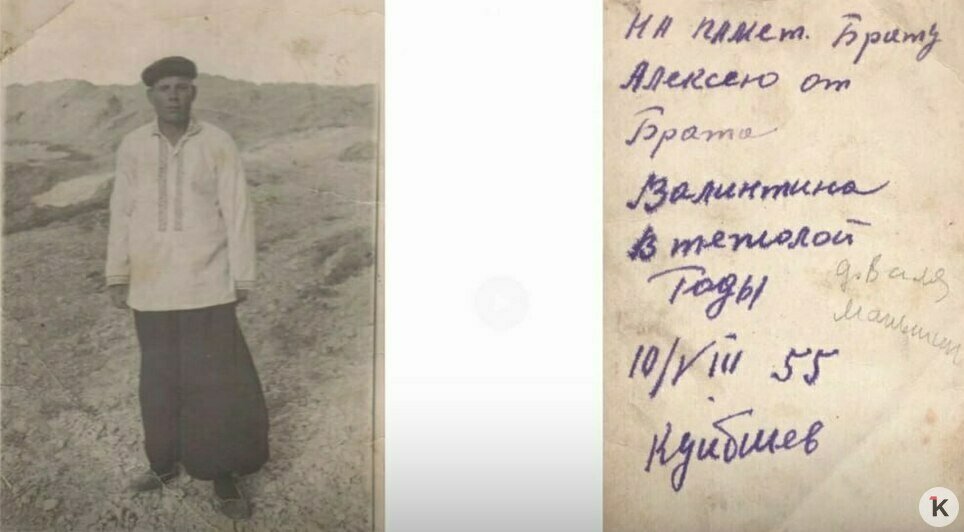 На памет. Брату
Алексею от
Брата
Валинтина
В тежолой
Годы
10/VIII 55
Куйбшев
д. Валя
K